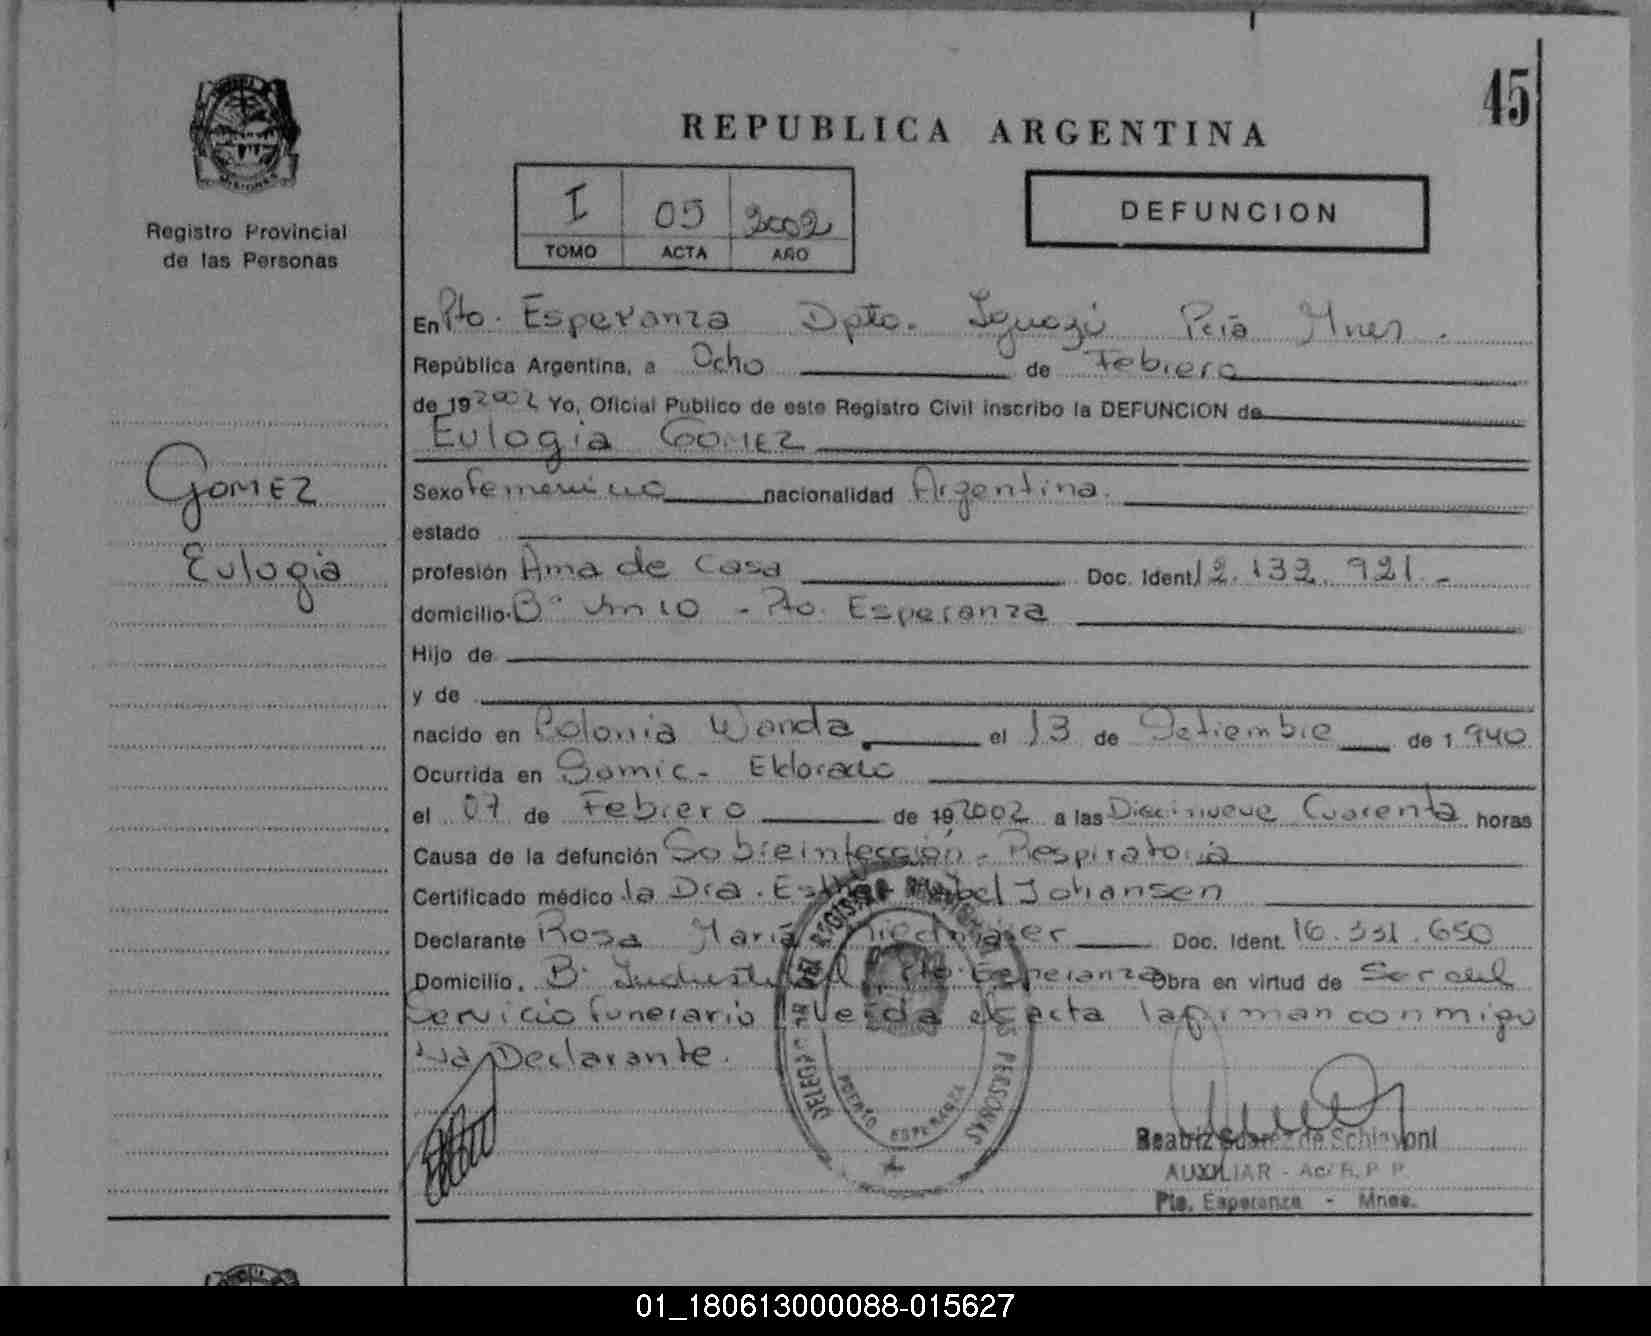 45
REPUBLICA ARGENTINA
MISIONES
Registro Provincial
de las Personas
I 05 2002
TOMO ACTA AÑO
DEFUNCION
En Pto. Esperanza Dpto. Iguazú Pcia Mnes.
República Argentina, a Ocho de Febrero
de 19 2002 Yo, Oficial Publico de este Registro Civil inscribo la DEFUNCION de
Eulogia GOMEZ
GOMEZ
Eulogia
Sexo femenino nacionalidad Argentina.
estado
profesión Ama de Casa Doc. Ident. 12.132.921.-
domicilio B° Unio - Pto. Esperanza
Hijo de
y de
nacido en Colonia Wanda el 13 de Setiembre de 1 940
Ocurrida en Samic - Eldorado
el 07 de Febrero de 19 2002 a las Diecinueve Cuarenta horas
Causa de la defunción Sobreinfección - Respiratoria
Certificado médico la Dra. Johansen
Declarante Rosa María Doc. Ident. 16.331.650
Domicilio. B° Pto. Esperanza Obra en virtud de Ser del
Servicio funerario Leída el acta la firman conmigo
La Declarante.
DELEG DEL REGISTRO LAS PERSONAS
PUERTO ESPERANZA
Beatriz Suarez de Schiavoni
AUXILIAR - Ac/ R. P. P.
Pto. Esperanza - Mnes.
01_180613000088-015627